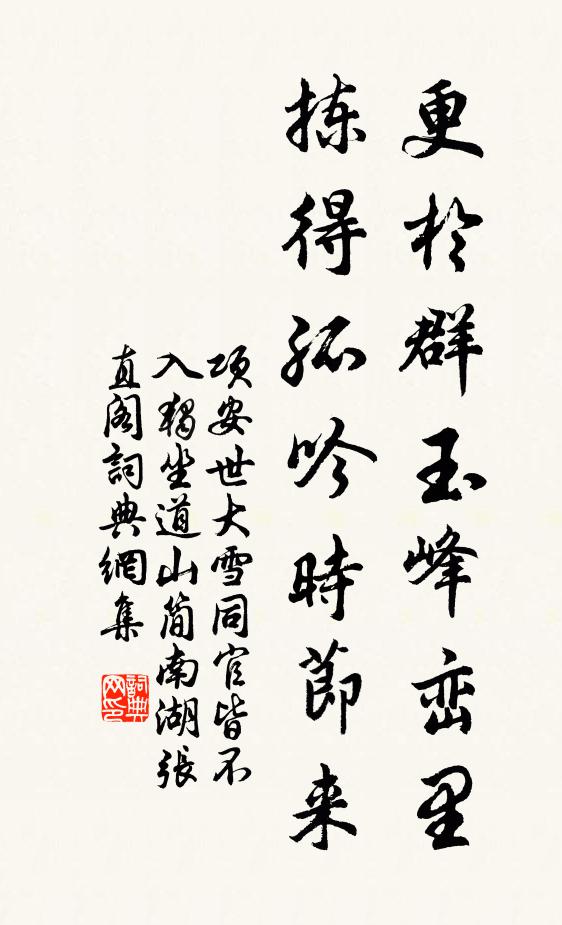 更於群玉峰峦里
拣得孤吟時節来
項安世大雪同官皆不
入獨坐道山簡南湖張
直閣詞典網集
詞典
网印